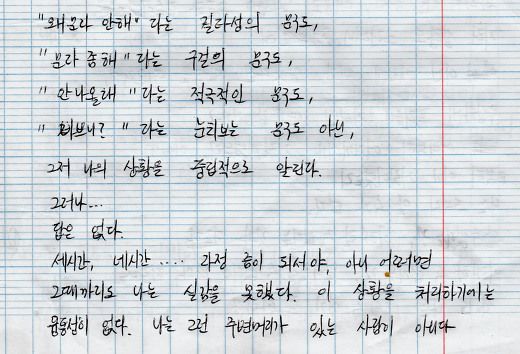 "왜 혼자 안해" 라는 질타성의 문구도,
"혼라 좀 해" 라는 구걸의 문구도,
"안나올래" 라는 적극적인 문구도,
"바쁘니?" 라는 눈치보는 문구도 아닌,
그저 나의 상황을 중립적으로 알린다.
그러나...
답은 없다.
세시간, 네시간 .... 과정 중이 되서야, 아니 어쩌면
그때까지도 나는 실감을 못했다. 이 상황을 처리하기에는
융통성이 없다. 나는 그런 주변머리가 있는 사람이 아니다